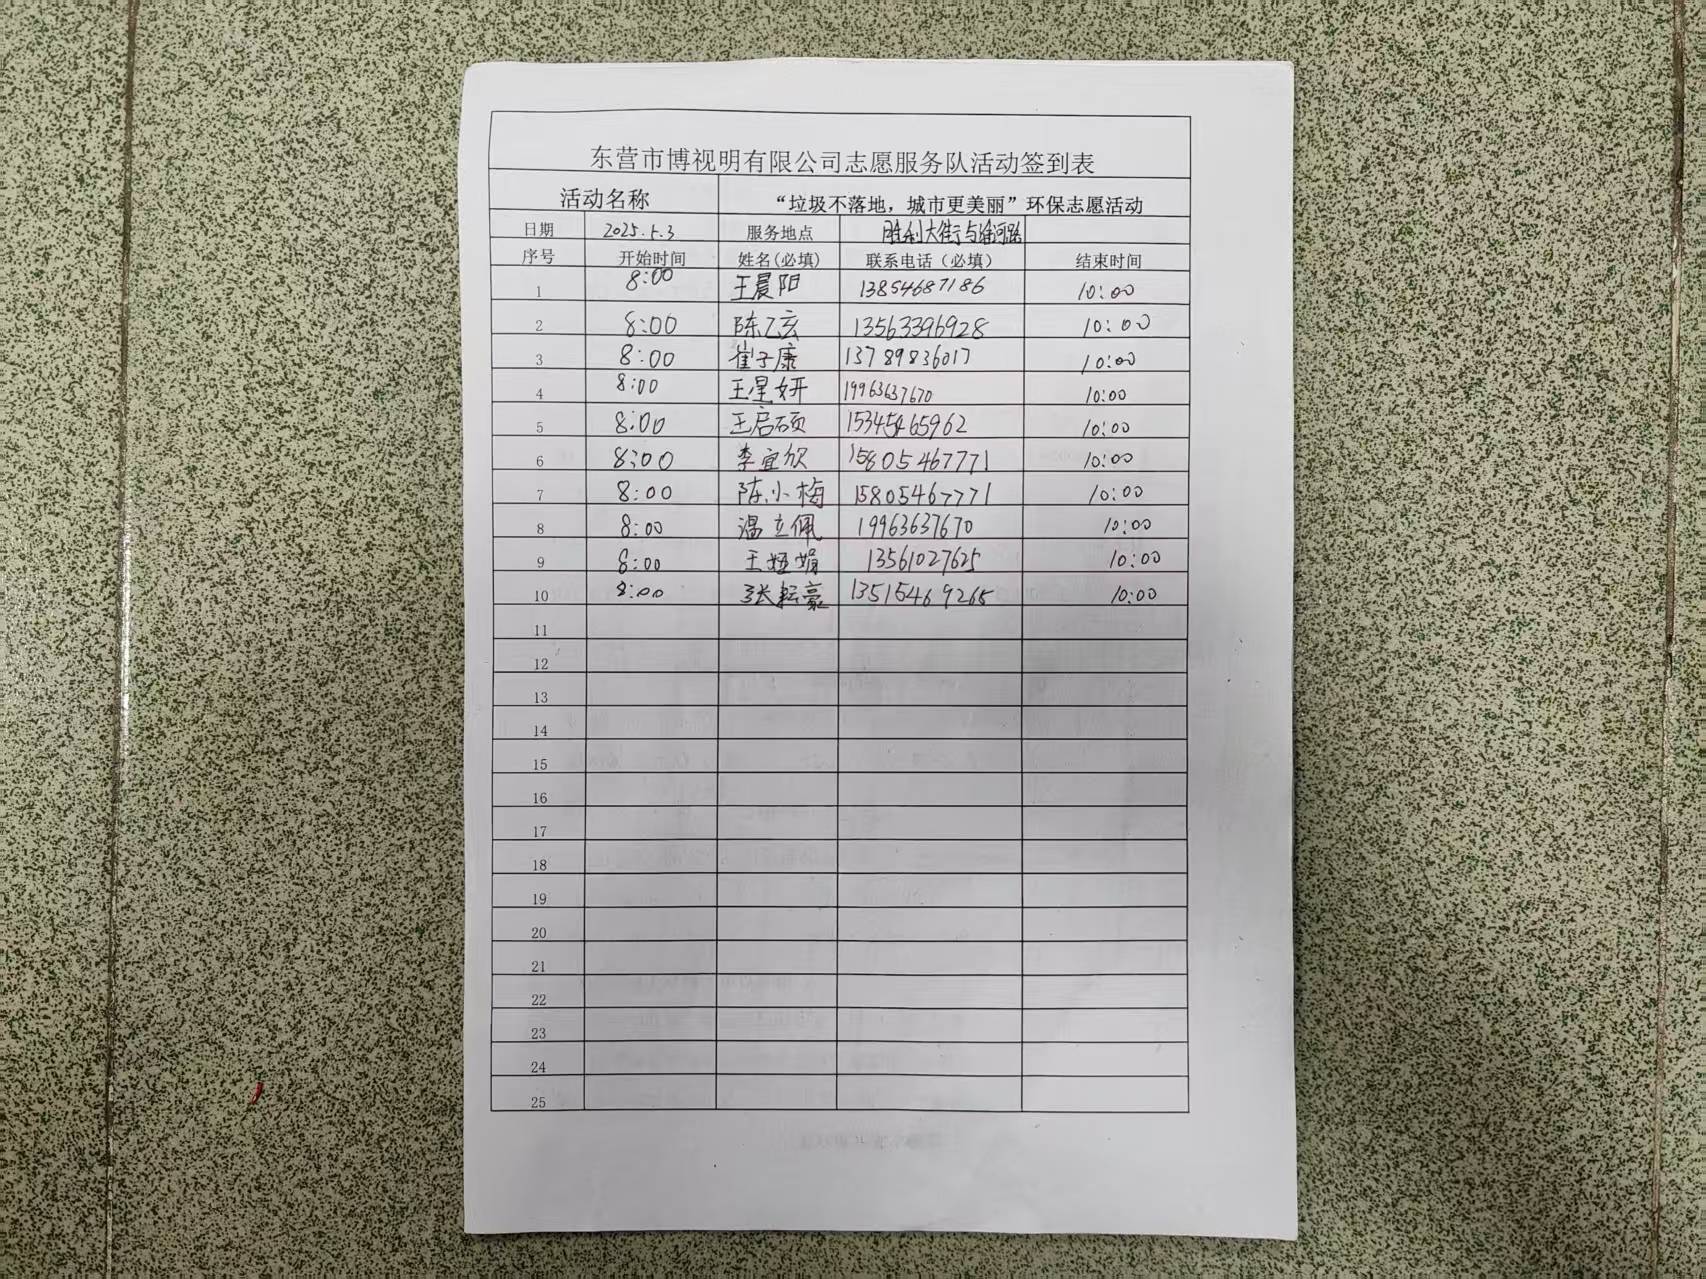 东营市博视明有限公司志愿服务队活动签到表
活动名称 “垃圾不落地，城市更美丽”环保志愿活动
日期 2025.5.3 服务地点 胜利大街与淮河路
序号 开始时间 姓名(必填) 联系电话（必填） 结束时间
1 8:00 王晨阳 13854687186 10:00
2 8:00 陈乙玄 13563396928 10:00
3 8:00 崔子康 13789836017 10:00
4 8:00 王星妍 19963637670 10:00
5 8:00 王启硕 15345465962 10:00
6 8:00 李宜欣 15805467771 10:00
7 8:00 陈小梅 15805467771 10:00
8 8:00 温立佩 19963637670 10:00
9 8:00 王娅娟 13561027625 10:00
10 8:00 张耘豪 13515469265 10:00
11
12
13
14
15
16
17
18
19
20
21
22
23
24
25